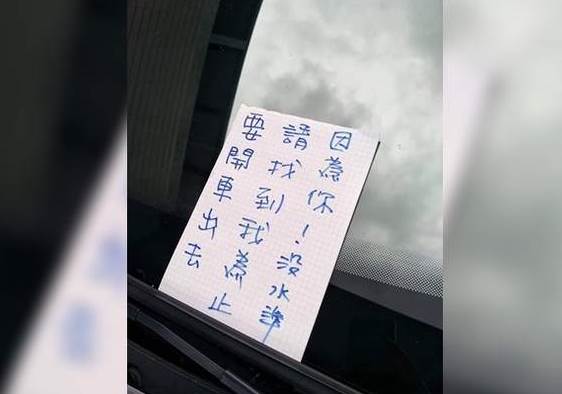 因為你！没水準
請找到我為止
要開車出去